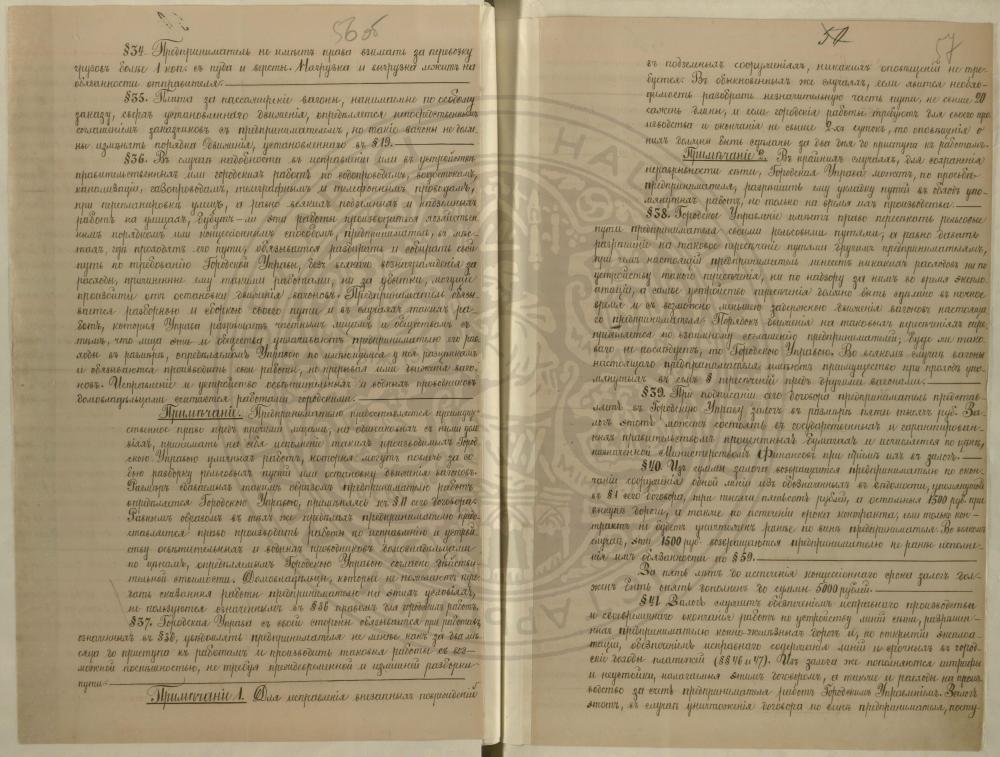 56об
§34. Предприниматель не имѣетъ права взимать за перевозку
грузовъ болѣе 1 коп. съ пуда и версты. Нагрузка и выгрузка лежитъ на
обязанности отправителя.
§35. Плата за пассажирскіе вагоны, нанимаемые по особому
заказу, сверхъ установленнаго движенія, опредѣляется непосредственнымъ
соглашеніемъ заказчиковъ съ предпринимателемъ, но такіе вагоны не долж-
ны измѣнять порядка движенія, установленнаго въ §19.
§36. Въ случаѣ надобности въ исправленіи или въ устройствѣ
правительственныхъ или городскихъ работъ по водопроводамъ, водостокамъ,
канализаціи, газопроводамъ, телеграфнымъ и телефоннымъ проводамъ,
при перепланировкѣ улицъ, а равно всякихъ подземныхъ и надземныхъ
работъ на улицахъ, будутъ-ли эти работы производиться хозяйствен-
нымъ порядкомъ или концессіоннымъ способомъ, предприниматель, въ мѣс-
тахъ, гдѣ проходятъ его пути, обязывается разбирать и собирать свой
путь по требованію Городской Управы, безъ всякаго вознагражденія за
расходы, причиненные ему такими работами, ни за убытки, могущіе
произойти отъ остановки движенія вагоновъ. Предприниматель обязы-
вается разборкою и сборкою своего пути и въ случаяхъ такихъ ра-
ботъ, которыя Управа разрѣшитъ частнымъ лицамъ и обществамъ съ
тѣмъ, что лица эти и общества уплачиваютъ предпринимателю его рас-
ходы въ размѣрѣ, опредѣляемомъ Управою по имѣющимся у нея расцѣнкамъ
и обязываются производить свои работы, не прерывая или движенія ваго-
новъ. Исправленіе и устройство освѣтительныхъ и водныхъ проводниковъ
домовладѣльцами считается работами городскими.
Примѣчаніе. Предпринимателю предоставляется преимуще-
ственное право предъ прочими лицами, на одинаковыхъ съ ними усло-
віяхъ, принимать на себя исполненіе такихъ производимыхъ Город-
скою Управою уличныхъ работъ, которыя могутъ повлечь за со-
бою разборку рельсовыхъ путей или остановку движенія вагоновъ.
Размѣръ сдаваемыхъ такимъ образомъ предпринимателю работъ
опредѣляется Городскою Управою, примѣняясь къ §11 сего договора.
Равнымъ образомъ въ тѣхъ же случаяхъ предпринимателю предо-
ставляется право производить работы по исправленію и устрой-
ству освѣтительныхъ и водныхъ проводниковъ домовладѣльцами
по цѣнамъ, опредѣляемымъ Городскою Управою согласно дѣйстви-
тельной стоимости. Домовладѣльцы, которые не пожелаютъ пре-
дать сказанныя работы предпринимателю на этихъ условіяхъ,
не пользуются означеннымъ въ §36 правомъ для городскихъ работъ.
§37. Городская Управа съ своей стороны обязывается при работахъ,
означенныхъ въ §36, увѣдомлять предпринимателя не менѣе, какъ за два мѣ-
сяца до приступа къ работамъ и производить таковыя работы съ воз-
можной поспѣшностью, не требуя преждевременной и излишней разборки
пути.
Примѣчаніе 1. Для исправленія внезапныхъ поврежденій
57
въ подземныхъ сооруженіяхъ, никакихъ оповѣщеній не тре-
буется. Въ обыкновенныхъ же случаяхъ, если явится необхо-
димость разобрать незначительную часть пути, не свыше 20
сажень длины, и если городскія работы требуютъ для своего про-
изводства и окончанія не свыше 2-хъ сутокъ, то оповѣщенія о
нихъ должны быть сдѣланы за два дня до приступа къ работамъ.
Примѣчаніе 2. Въ крайнихъ случаяхъ, для сохраненія
непрерывности сѣти, Городская Управа можетъ, по просьбѣ
предпринимателя, разрѣшить ему укладку путей въ обходъ упо-
мянутыхъ работъ, но только на время ихъ производства.
§38. Городское Управленіе имѣетъ право пересѣкать рельсовые
пути предпринимателя своими рельсовыми путями, а равно давать
разрѣшеніе на таковое пересѣченіе путями другимъ предпринимателямъ,
при чемъ настоящій предприниматель не несетъ никакихъ расходовъ ни по
устройству такого пересѣченія, ни по надзору за нимъ во время эксплоа-
таціи, а самое устройство пересѣченія должно быть сдѣлано въ ночное
время и съ возможно меньшею задержкою движенія вагоновъ настояща-
го предпринимателя. Порядокъ движенія на таковыхъ пересѣченіяхъ опре-
дѣляется по взаимному соглашенію предпринимателей, буде-же тако-
ваго не послѣдуетъ, то Городскою Управою. Во всякомъ случаѣ вагоны
настоящаго предпринимателя имѣютъ преимущество при проходѣ упо-
мянутыхъ въ семъ § пересѣченій предъ другими вагонами.
§39. При подписаніи сего договора предприниматель представ-
ляетъ въ Городскую Управу залогъ въ размѣрѣ пяти тысячъ руб. За-
логъ этотъ можетъ состоять въ государственныхъ и гарантирован-
ныхъ правительствомъ процентныхъ бумагахъ и исчисляется по цѣнѣ,
назначенной Министерствомъ Финансовъ при пріемѣ ихъ въ залогъ.
§40. Изъ суммы залога возвращается предпринимателю по окон-
чаніи сооруженія одной линіи изъ обозначенныхъ въ вѣдомости, упомянутой
въ §1 сего договора, три тысячи пятьсотъ рублей, а остальные 1500 руб. при
выкупѣ дороги, а также по истеченіи срока контракта, если только кон-
трактъ не будетъ уничтоженъ ранѣе по винѣ предпринимателя. Во всякомъ
случаѣ, эти 1500 руб. возвращаются предпринимателю не ранѣе исполне-
нія имъ обязанности по §59.
За пять лѣтъ до истеченія концессіоннаго срока залогъ дол-
женъ быть опять пополненъ до суммы 5000 рублей.
§41. Залогъ служитъ обезпеченіемъ исправнаго производства
и своевременнаго окончанія работъ по устройству линій сѣти, разрѣшен-
ныхъ предпринимателю конно-желѣзныхъ дорогъ и, по открытіи эксплоа-
таціи, обезпеченіемъ исправнаго содержанія линій и срочныхъ въ город-
скіе доходы платежей (§§46 и 47). Изъ залога же пополняются штрафы
и неустойки, налагаемые этимъ договоромъ, а также и расходы на произ-
водство за счетъ предпринимателя работъ Городскимъ Управленіемъ. Залогъ
этотъ, въ случаѣ уничтоженія договора по винѣ предпринимателя, посту-